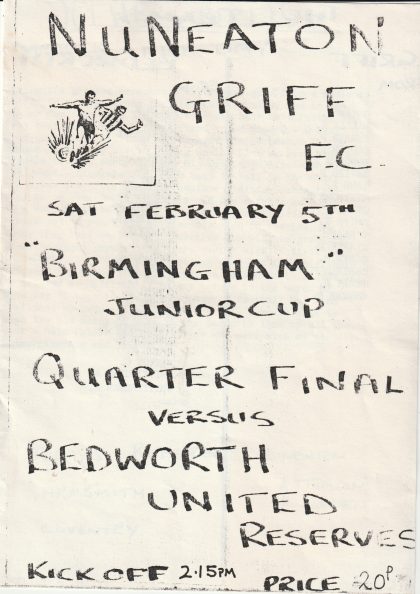 NUNEATON
GRIFF
F.C.
SAT FEBRUARY 5TH
"BIRMINGHAM"
JUNIOR CUP
QUARTER FINAL
VERSUS
BEDWORTH
UNITED
RESERVES
KICK OFF 2.15PM
PRICE 20P